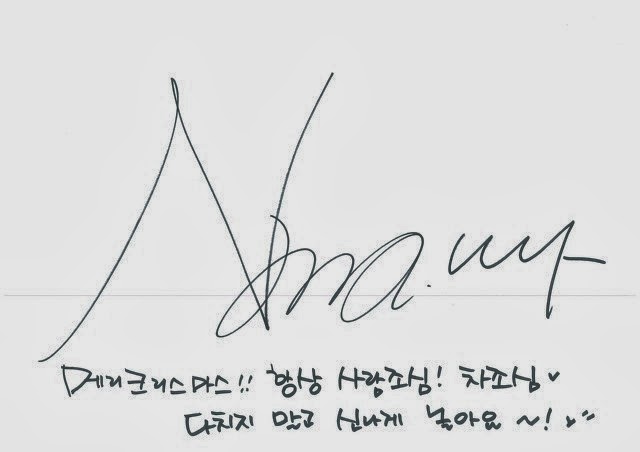 메리크리스마스!! 항상 사람조심! 차조심♥
다치지 말고 신나게 놀아요 ~!